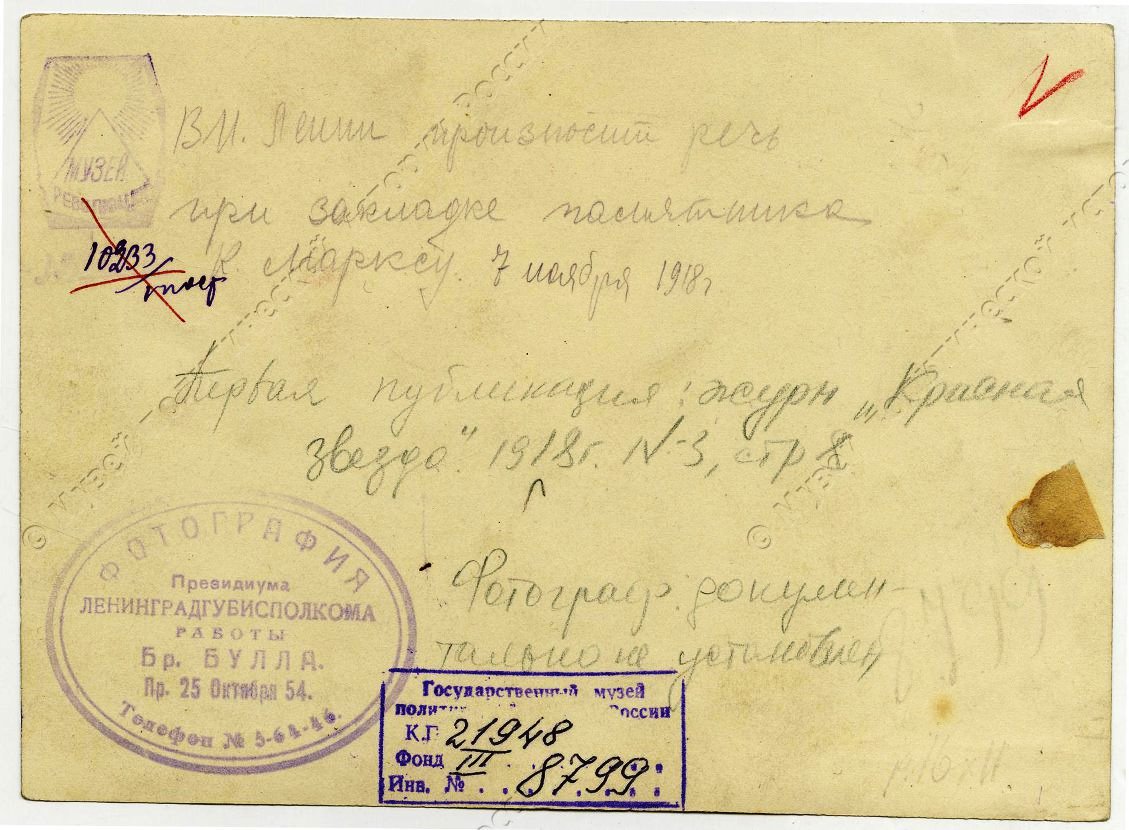 МУЗЕЙ
РЕВОЛЮЦИИ
В.И. Ленин произносит речь
при закладке памятника
К Марксу. 7 ноября 1918 г
10233
Первая публикация: журн „Красная
звезда". 1918 г. N-3, стр 8
ФОТОГРАФИЯ
Президиума
ЛЕНИНГРАДГУБИСПОЛКОМА
РАБОТЫ
Бр. БУЛЛА.
Пр. 25 Октября 54.
Телефон № 5-64-46.
Фотограф докумен-
тально не установлен
Государственный музей
полит России
К.П 21948
Фонд III
Инв. № 8799